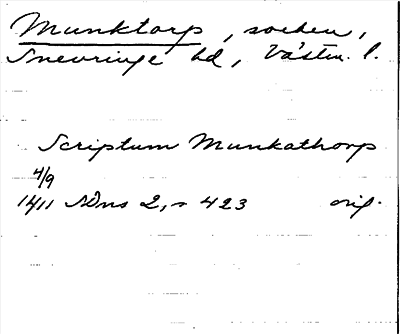 Munktorp, socken,
Snevringe hd, Västm. l.
Scriptum Munkathorp
4/9
1411 SDns 2, s 423 orig.